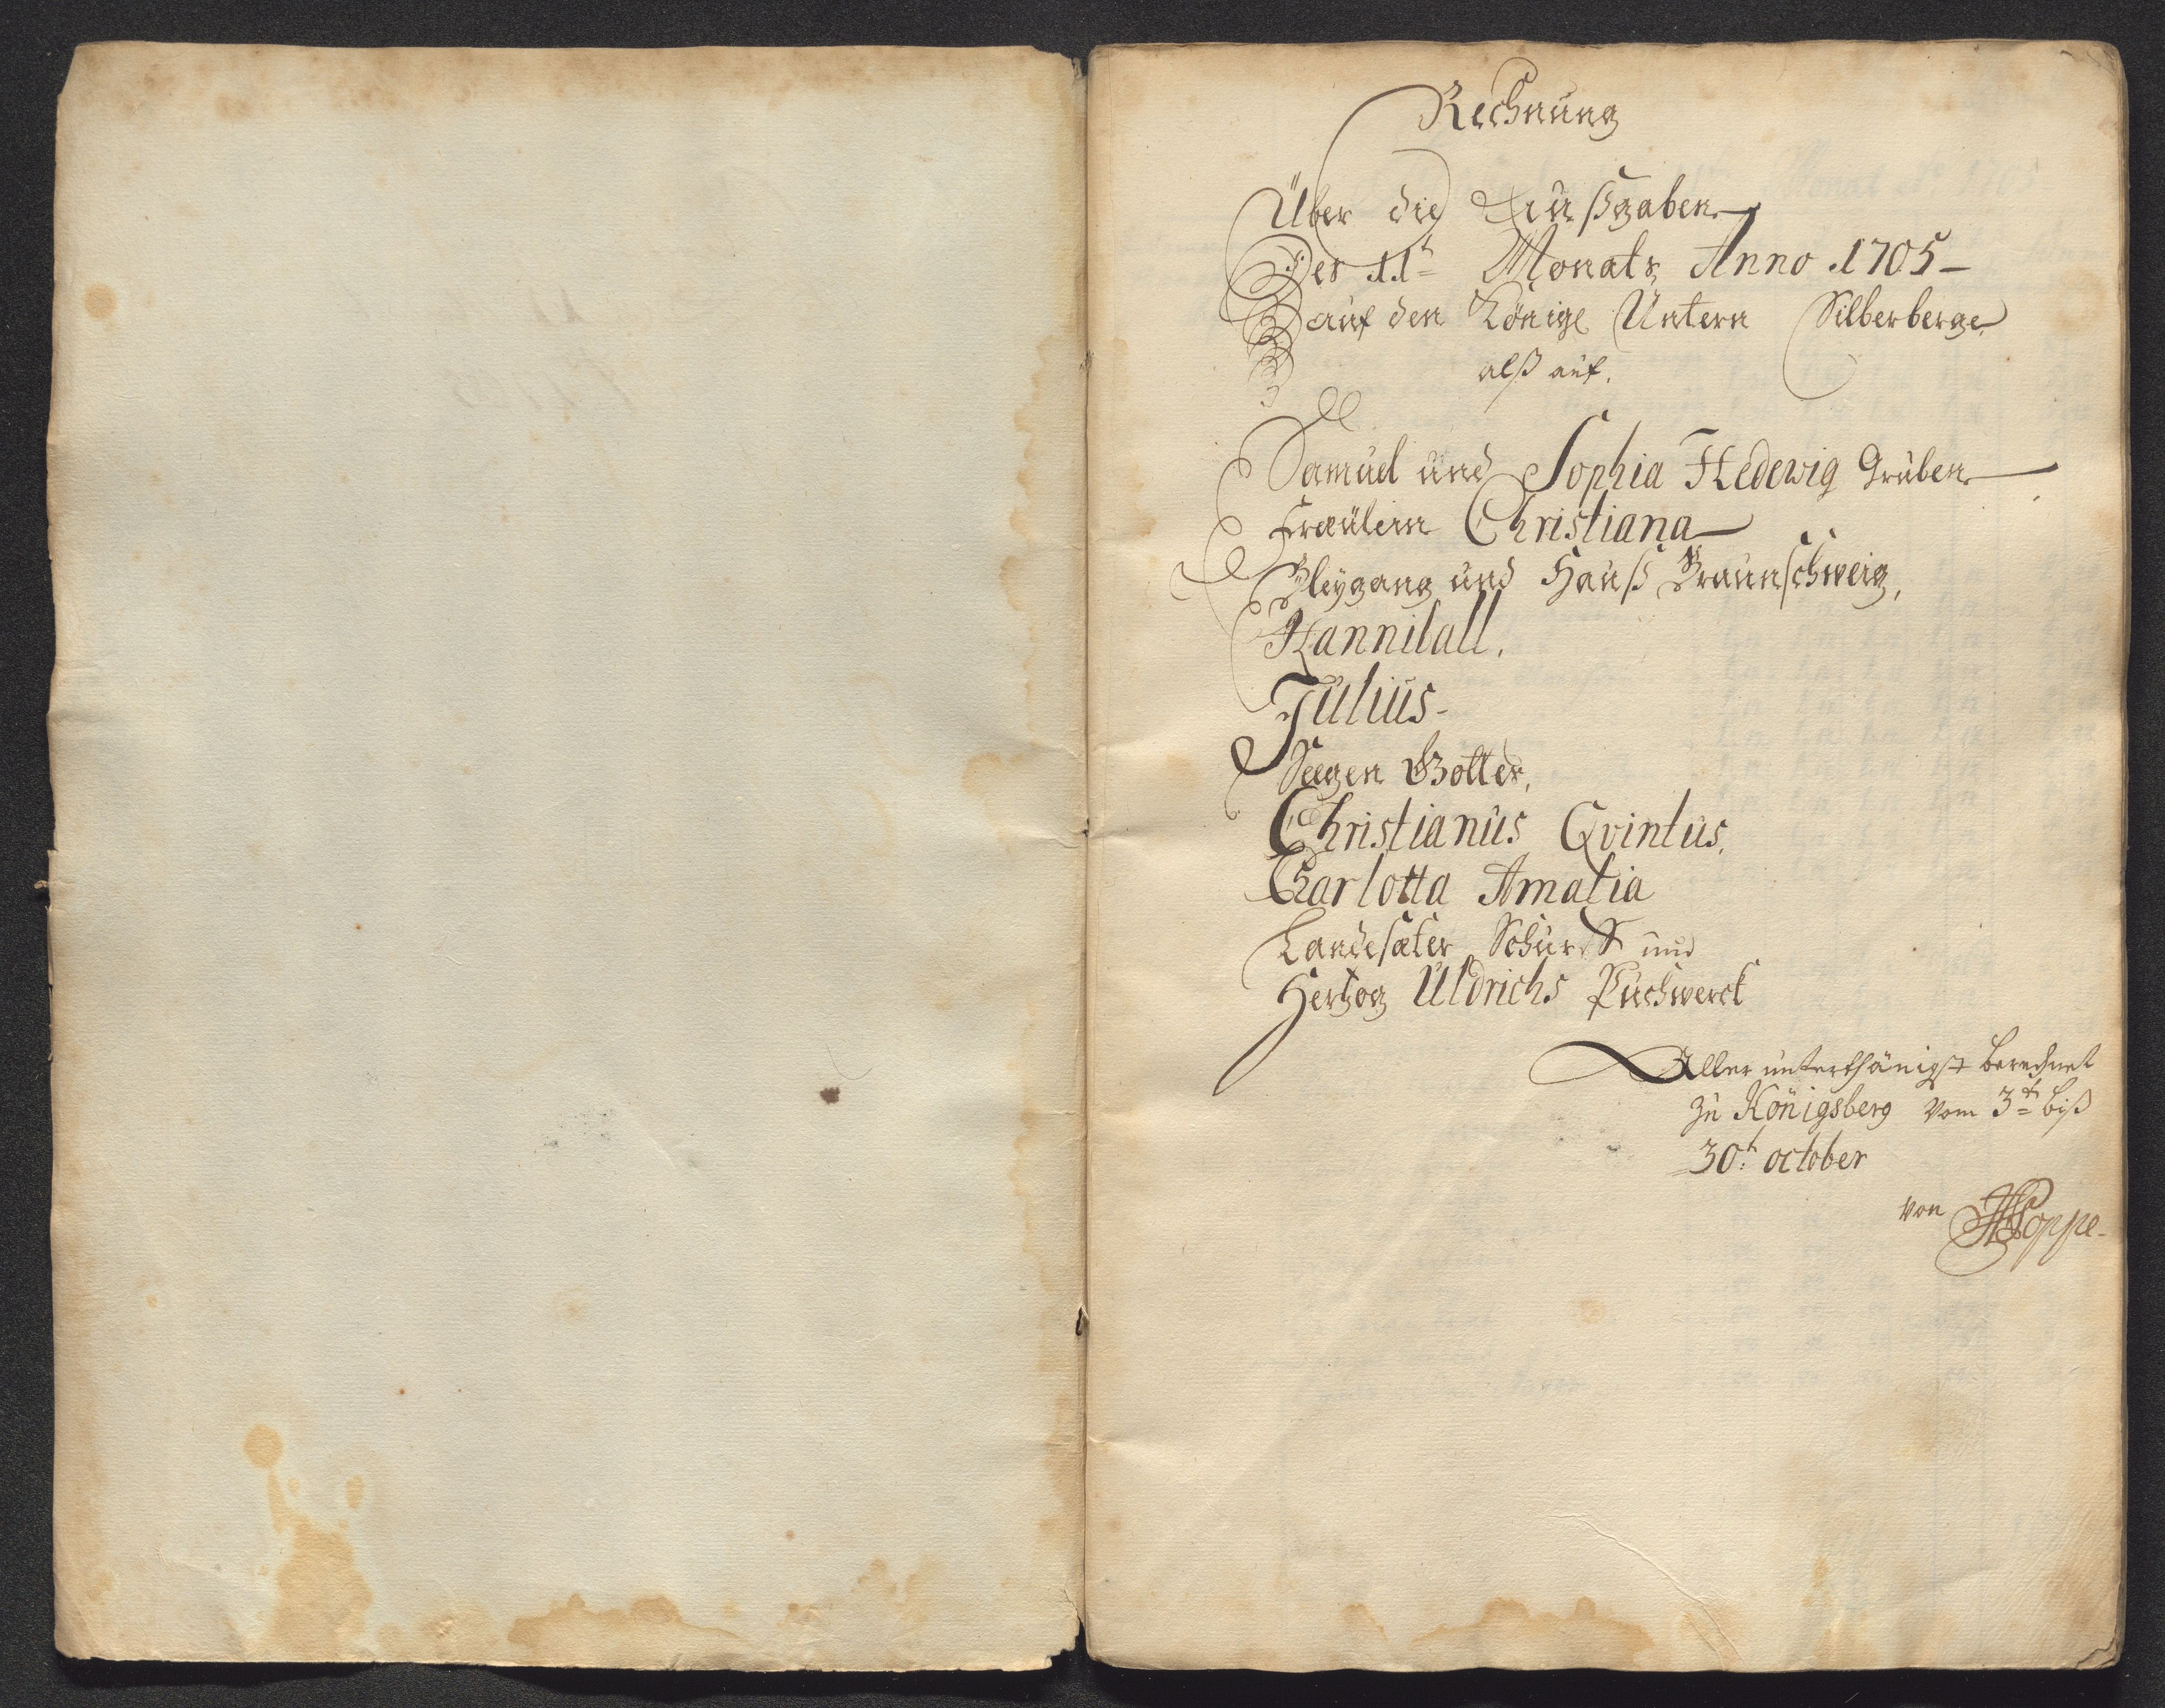 Rechnung
Über die Außgaben
Des 11t Monats Anno 1705
auf den Königl Untern Silberberge
alß auf.
Samuel und Sophia Hedewig Gruben
Fraülein Christiana
Bleygang und Hauß Braunschweig,
Hanniball.
Julius
Seegen Gottes,
Christianus Qvintus,
Charlotta Amalia
Schurff und
Hertzog Uldrichs Puchwerck
Aller unterthänigst berechnet
zu Königsberg vom 3t biß
30t october
von HPoppe